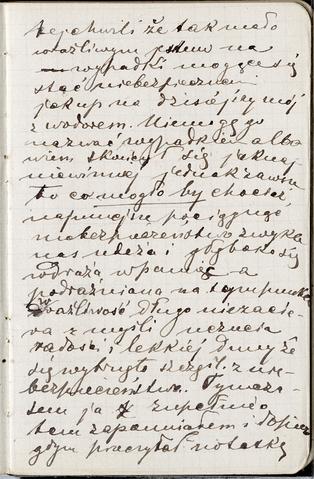 tej chwili że tak mało
wrażliwym jestem na
wypadki mogące się
stać niebezpiecznemi
jak up na dzisiejszy mój
z wodorem. Nie mogę go
nazwać wypadkiem albo
wiem skończył się jaknaj
niewinniej jednak zawsze
to co mogło by chociaż
najmniejsze pociągnąć
niebezpieczeństwo zwykle
nas uderza i głęboko się
wdraża w pamięć a
podrażniona na tym punkcie
wrażliwość długo nie zacie
ra z myśli uczucia
radości i lekkiej dumy że
się wybrnęło szczęśl. z nie
bezpieczeństwa. Tymcza
sem ja zupełnie o
tem zapomniałem i dopiero
gdym przeczytał notatkę